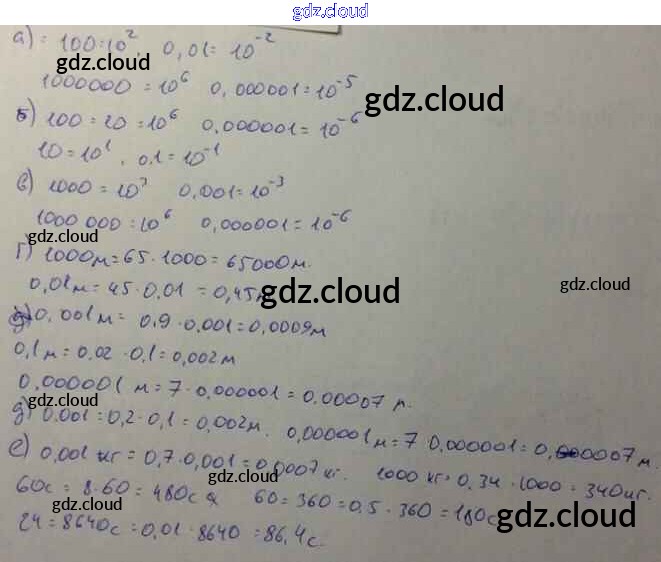 gdz.cloud
а) = 100=10², 0,01= 10⁻²
gdz.cloud
1000000 = 10⁶ 0,000001=10⁻⁵
gdz.cloud
б) 100 = 10 = 10⁶ 0,000001=10⁻⁶
10=10¹, 0.1=10⁻¹
в) 1000=10³ 0,001=10⁻³
1000 000=10⁶ 0,000001=10⁻⁶
gdz.cloud
г) 1000м=65·1000=65000м.
gdz.cloud
gdz.cloud
0,01м=45·0,01=0,45м
0,001м= 0.9·0.001=0,0009м
0,1м=0.02·0,1=0,002м
0.000001 м=7·0,000001=0.00007 м.
gdz.cloud
д) 0.001=0,2·0,1=0,002м. 0,000001м=7·0,000001=0,000007м.
е) 0,001 кг=0,7·0,001=0,0007кг. 1000 кг=0,34·1000=340кг.
60с=8·60=480с 60=360=0.5·360=180с
gdz.cloud
gdz.cloud
24=8640с=0,01·8640=86,4с.